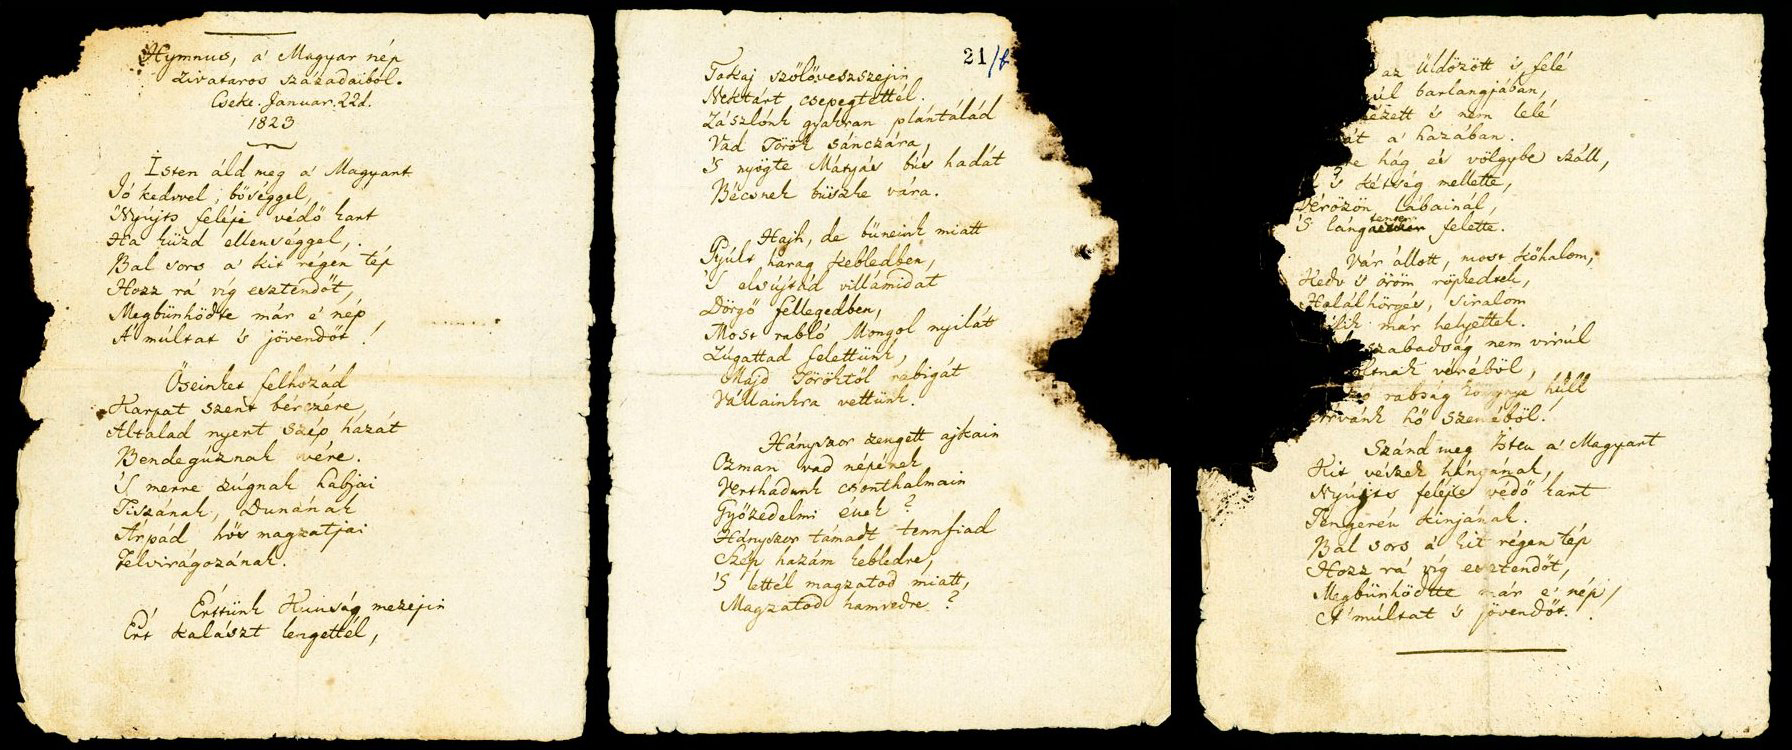 Hymnus, a' Magyar nép
zivataros századaiból.
Cseke. Januar. 22d.
1823
Isten áld meg a' Magyart
Jó kedvvel, bőséggel,
Nyújts feléje védő kart
Ha küzd ellenséggel,
Bal sors a' kit régen tép
Hozz rá víg esztendőt,
Megbünhödte már e' nép
A' múltat 's jövendőt!
Őseinket felhozád
Kárpát szent bérczére,
Általad nyert szép hazát
Bendegúznak vére.
'S merre zúgnak habjai
Tiszának, Dunának
Árpád hős magzatjai
Felvirágozának.
Értünk Kunság mezejin
Ért kalászt lengettél,
21/b
Tokaj szőlővesszejin
Nektárt csepegtettél.
Zászlónk gyakran plántálád
Vad Török sánczára,
'S nyögte Mátyás bús hadát
Bécsnek büszke vára.
Hajh, de büneink miatt
Gyúlt harag kebledben,
'S elsújtád villámidat
Dörgő fellegedben,
Most rabló Mongol nyilát
Zúgattad felettünk,
Majd Töröktől rabigát
Vállainkra vettünk.
Hányszor zengett ajkain
Ozman vad népének
Vert hadunk csonthalmain
Győzedelmi ének?
Hányszor támadt tennfiad
Szép hazám kebledre,
'S lettél magzatod miatt,
Magzatod hamvedre?
az üldözött 's felé
barlangjában,
nézett és nem lelé
a' hazában.
hág és völgybe száll,
's kétség mellette,
Vérözön lábainál,
'S lángtenger felette.
Vár állott, most kőhalom,
Kedv 's öröm röpkedtek,
Halálhörgés, siralom
már helyettek.
szabadság nem virúl
véréből,
rabság könnye hull
Árvánk hő szeméből.
Szánd meg Isten a' Magyart
Kit vészek hányanak,
Nyújts feléje védő kart
Tengerén kínjának.
Bal sors a' kit régen tép
Hozz rá víg esztendőt,
Megbünhödte már e' nép,
A' múltat 's jövendőt.